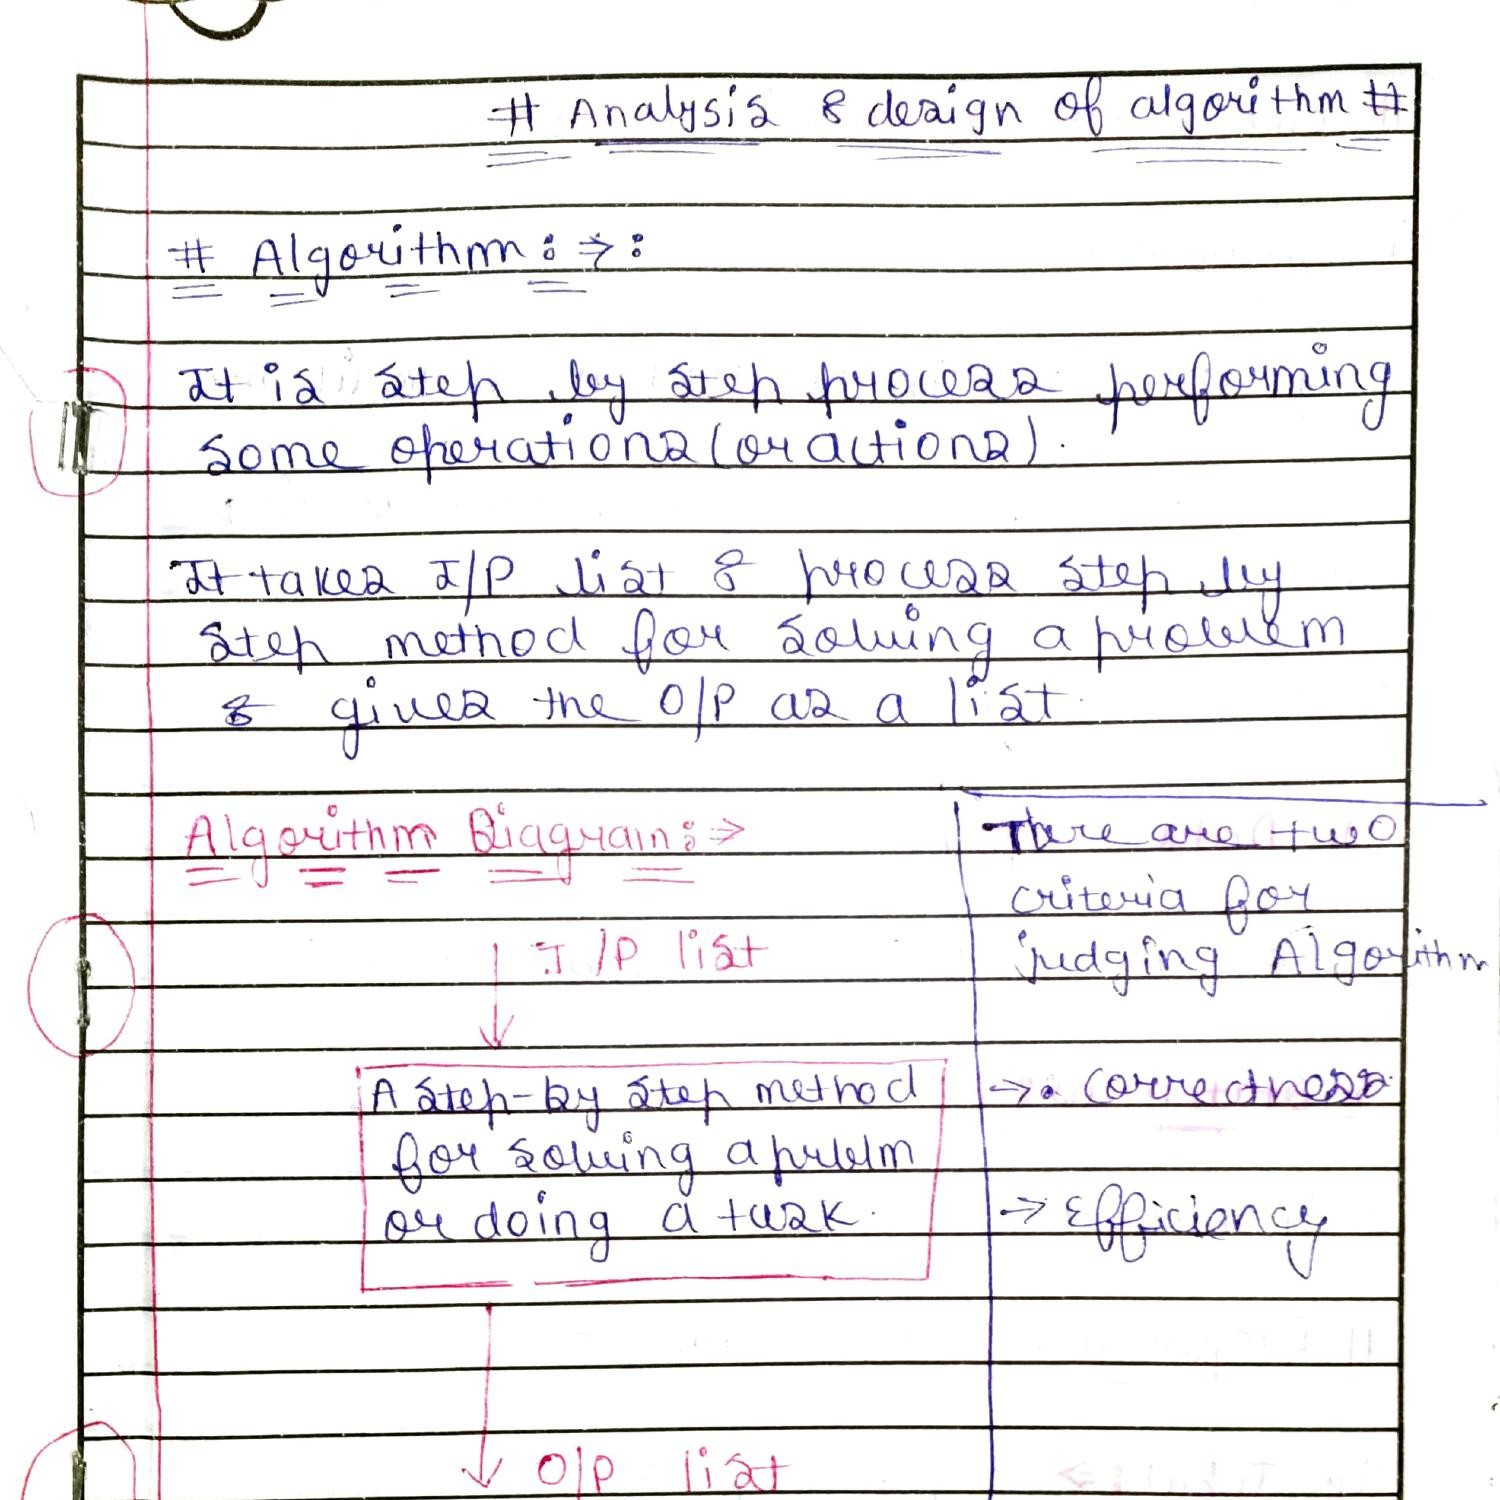 # Analysis & design of algorithm #
# Algorithm : → :
It is step by step process performing
some operations (or actions).
It takes I/P list & process step by
step method for solving a problem
& gives the O/P as a list.
Algorithm Diagram : →
I/P list
A step-by step method
for solving a prblm
or doing a task.
O/P list
There are two
criteria for
judging Algorithm
→ • Correctness
→ Efficiency